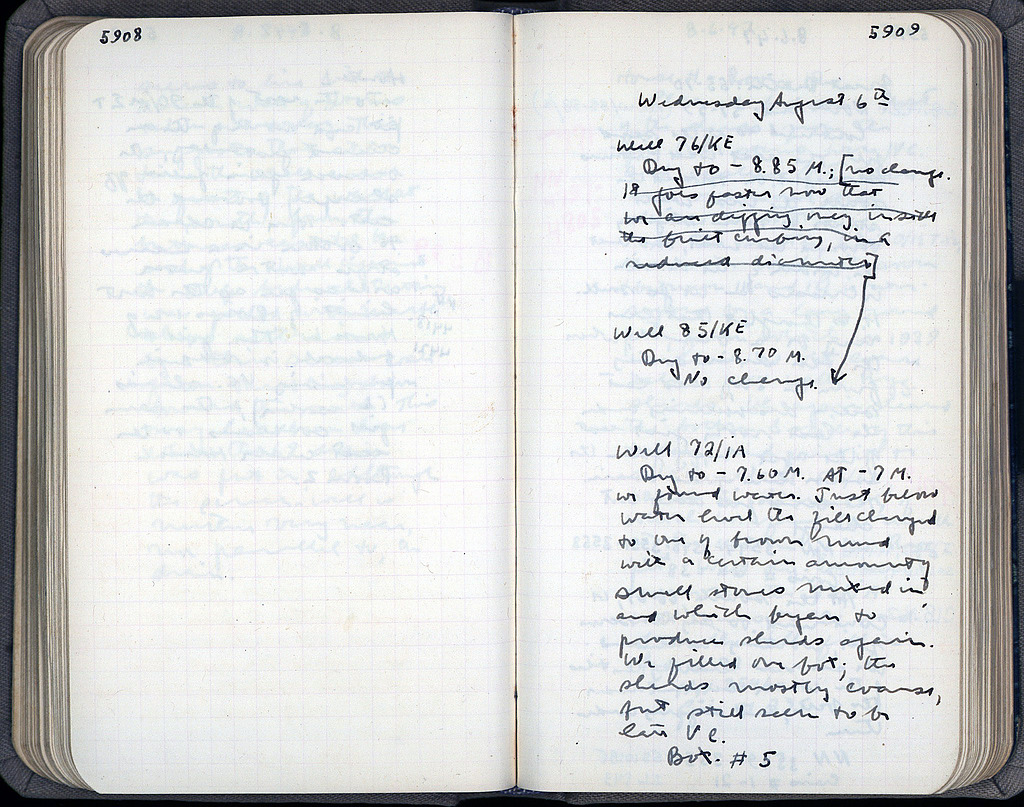 5908
5909
Wednesday August 6th
Well 76/KE
Dug to - 8.85 M.; [no change.
It goes faster now that
we are digging only inside
the built curbing, in a
reduced diameter]
Well 85/KE
Dug to - 8.70 M.
No change.
Well 72/1A
Dug to - 7.60 M. AT - 7 M.
we found water. Just below
water level the fill changed
to one of brown mud
with a certain amount of
small stones mixed in
and which began to
produce sherds again.
We filled one box; the
sherds mostly coarse,
but still seem to be
late V c.
Box # 5